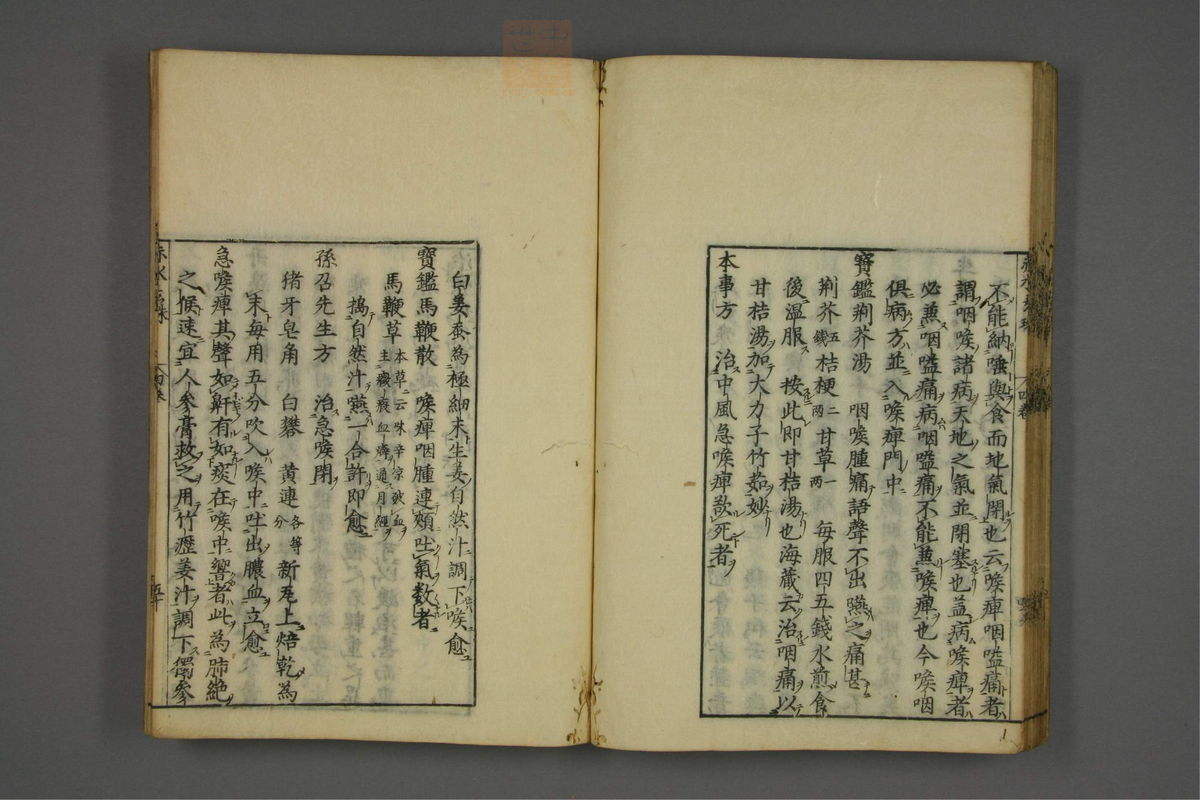 不能納唾與食而地氣閉也云喉痺咽嗌痛者
謂咽喉諸病天地之氣並閉塞也盖病喉痺者
必兼咽嗌痛病咽嗌痛不能兼喉痺也今喉咽
俱病方並入喉痺門中
寶鑑荆芥湯 咽喉腫痛語聲不出嚥之痛甚
荆芥五錢桔梗二兩甘草一兩 每服四五錢水煎食
後温服 按此即甘桔湯也海蔵云治咽痛以
甘桔湯加大力子竹茹妙
本事方 治中風急喉痺欲死者
白姜蚕為極細末生姜自然汁調下喉愈
寶鑑馬鞭散 喉痺咽腫連頬吐氣数者
馬鞭草本草云味辛凉破血主癥瘕血癖通月經
搗自然汁嚥一合許即愈
孫召先生方 治急喉閉
猪牙皂角 白礬 黄連各等分 新瓦上焙乾為
末每用五分吹入喉中吐出膿血立愈
急喉痺其聲如鼾有如痰在喉中響者此為肺絶
之候速宜人參膏救之用竹瀝姜汁調下獨參